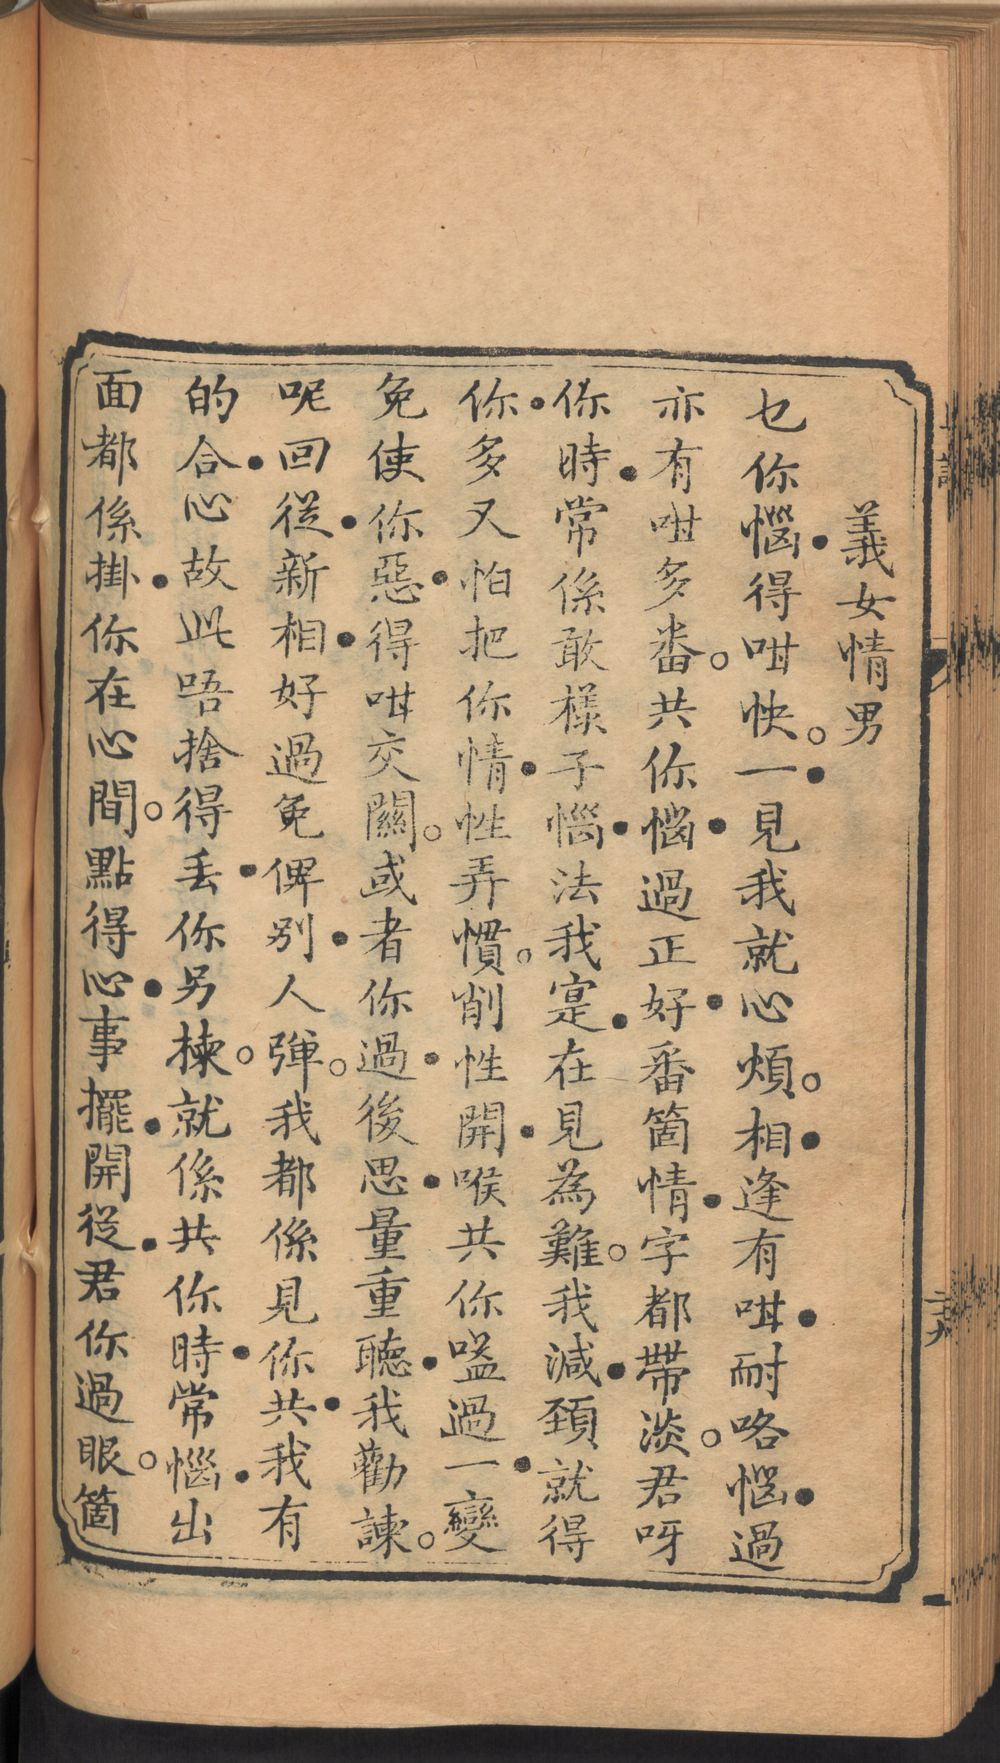 義女情男
乜你惱•得咁怏。一•見我就心煩。相•逢有咁•耐咯惱•過
亦有咁多番。共你惱•過正好•番箇情•字都帶淡。君呀
你時•常係敢樣子惱•法我寔•在見為難。我減•頚就得
你•多又怕把你情•性弄慣。削性開•喉共你嗌過一•變
免使你惡•得咁交關。或者你過•後思•量重聽•我勸諫。
呢回從•新相•好過免俾別•人彈。我都係見你共•我有
的合•心故此唔捨得丟•你另揀。就係共你時•常惱•出
面都係掛•你在心間。點得心•事擺•開從•君你過眼。箇